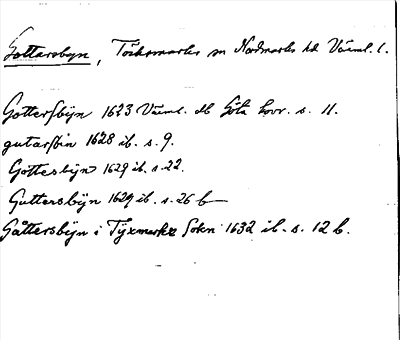 Gottersbyn, Töcksmarks sn Nordmarks hd Värml. l.
Gottersbÿn 1623 Värml. db Göta hovr. s. 11.
gutarsbin 1628 ib. s. 9.
Göttesbÿn 1629 ib. s. 22.
Guttersbÿn 1629 ib. s. 26 b
Gåttersbÿn i Tÿxmarke Sokn 1632 ib. s. 12 b.